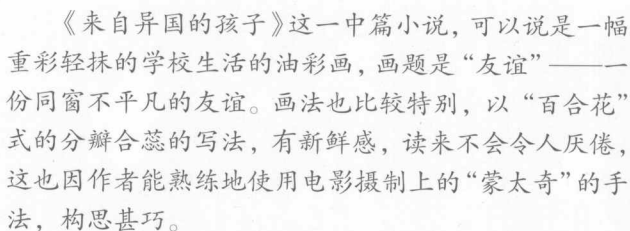 《来自异国的孩子》这一中篇小说，可以说是一幅
重彩轻抹的学校生活的油彩画，画题是“友谊”——一
份同窗不平凡的友谊。画法也比较特别，以“百合花”
式的分瓣合蕊的写法，有新鲜感，读来不会令人厌倦，
这也因作者能熟练地使用电影摄制上的“蒙太奇”的手
法，构思甚巧。